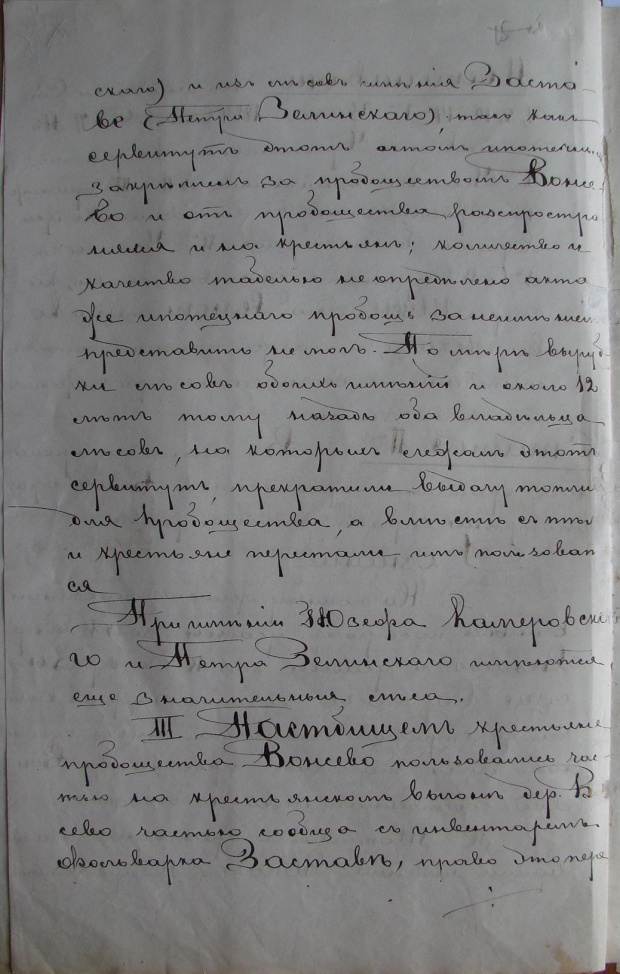 скаго) и изъ лѣсовъ имѣнія Заста-
ве (Петра Зелинскаго), такъ какъ
сервитутъ этотъ актомъ ипотечн.
закрѣпленъ за пробоществомъ Вонсе-
во и отъ пробощества распростра
нился и на крестьянъ; количество и
качество табелью не опредѣлено акта
же ипотецнаго пробощъ за неимѣніем
представить не могъ. По мѣрѣ выруб-
ки лѣсовъ обоихъ имѣній и около 12
лѣтъ тому назадъ оба владѣльца
лѣсовъ, на которыхъ лежалъ этотъ
сервитутъ, прекратили выдачу топли
для пробощества, а вмѣстѣ съ тѣм
и крестьяне перестали имъ пользоват
ся
При имѣніи Юзефа Камеровска
го и Петра Зелинскаго имѣются
еще значительныя лѣса.
III Пастбищемъ крестьяне
пробощества Вонсево пользовались час-
тью на крестьянскомъ выгонѣ дер. В
сево частью сообща съ инвентаремъ
фольварка Заставѣ, право это пере